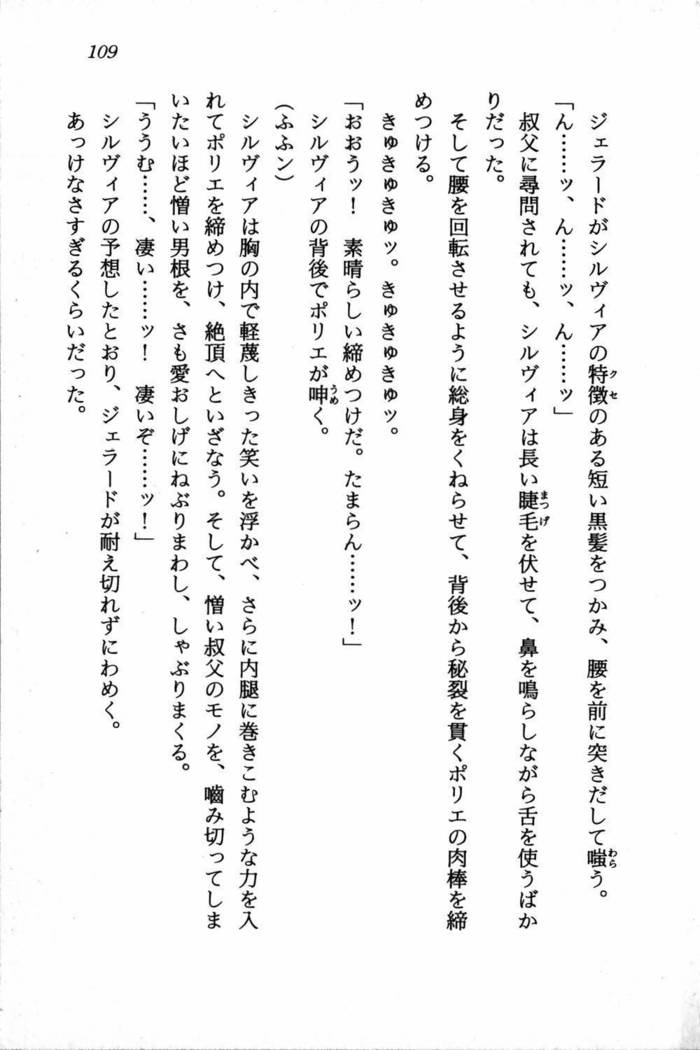 109
ジェラードがシルヴィアの特徴のある短い黒髪をつかみ、腰を前に突きだして嗤う。
「ん……ッ、ん……ッ、ん……ッ」
叔父に尋問されても、シルヴィアは長い睫毛を伏せて、鼻を鳴らしながら舌を使うばか
りだった。
そして腰を回転させるように総身をくねらせて、背後から秘裂を貫くポリエの肉棒を締
めつける。
きゅきゅきゅッ。きゅきゅきゅッ。
「おおうッ！　素晴らしい締めつけだ。たまらん……ッ！」
シルヴィアの背後でポリエが呻く。
（ふふン）
シルヴィアは胸の内で軽蔑しきった笑いを浮かべ、さらに内腿に巻きこむような力を入
れてポリエを締めつけ、絶頂へといざなう。そして、憎い叔父のモノを、嚙み切ってしま
いたいほど憎い男根を、さも愛おしげにねぶりまわし、しゃぶりまくる。
「ううむ……、凄い……ッ！　凄いぞ……ッ！」
シルヴィアの予想したとおり、ジェラードが耐え切れずにわめく。
あっけなさすぎるくらいだった。